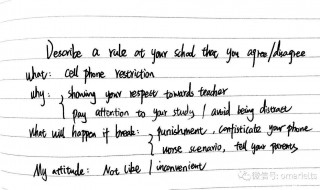 Describe a rule at your school that you agree/disagree
what: cell phone restriction
why: showing your respect towards teacher
pay attention to your study / avoid being distract
what will happen if break: punishment, confisticate your phone
worse scenario, tell your parents
My attitude: Not like / inconvenient
微信号: smartstls